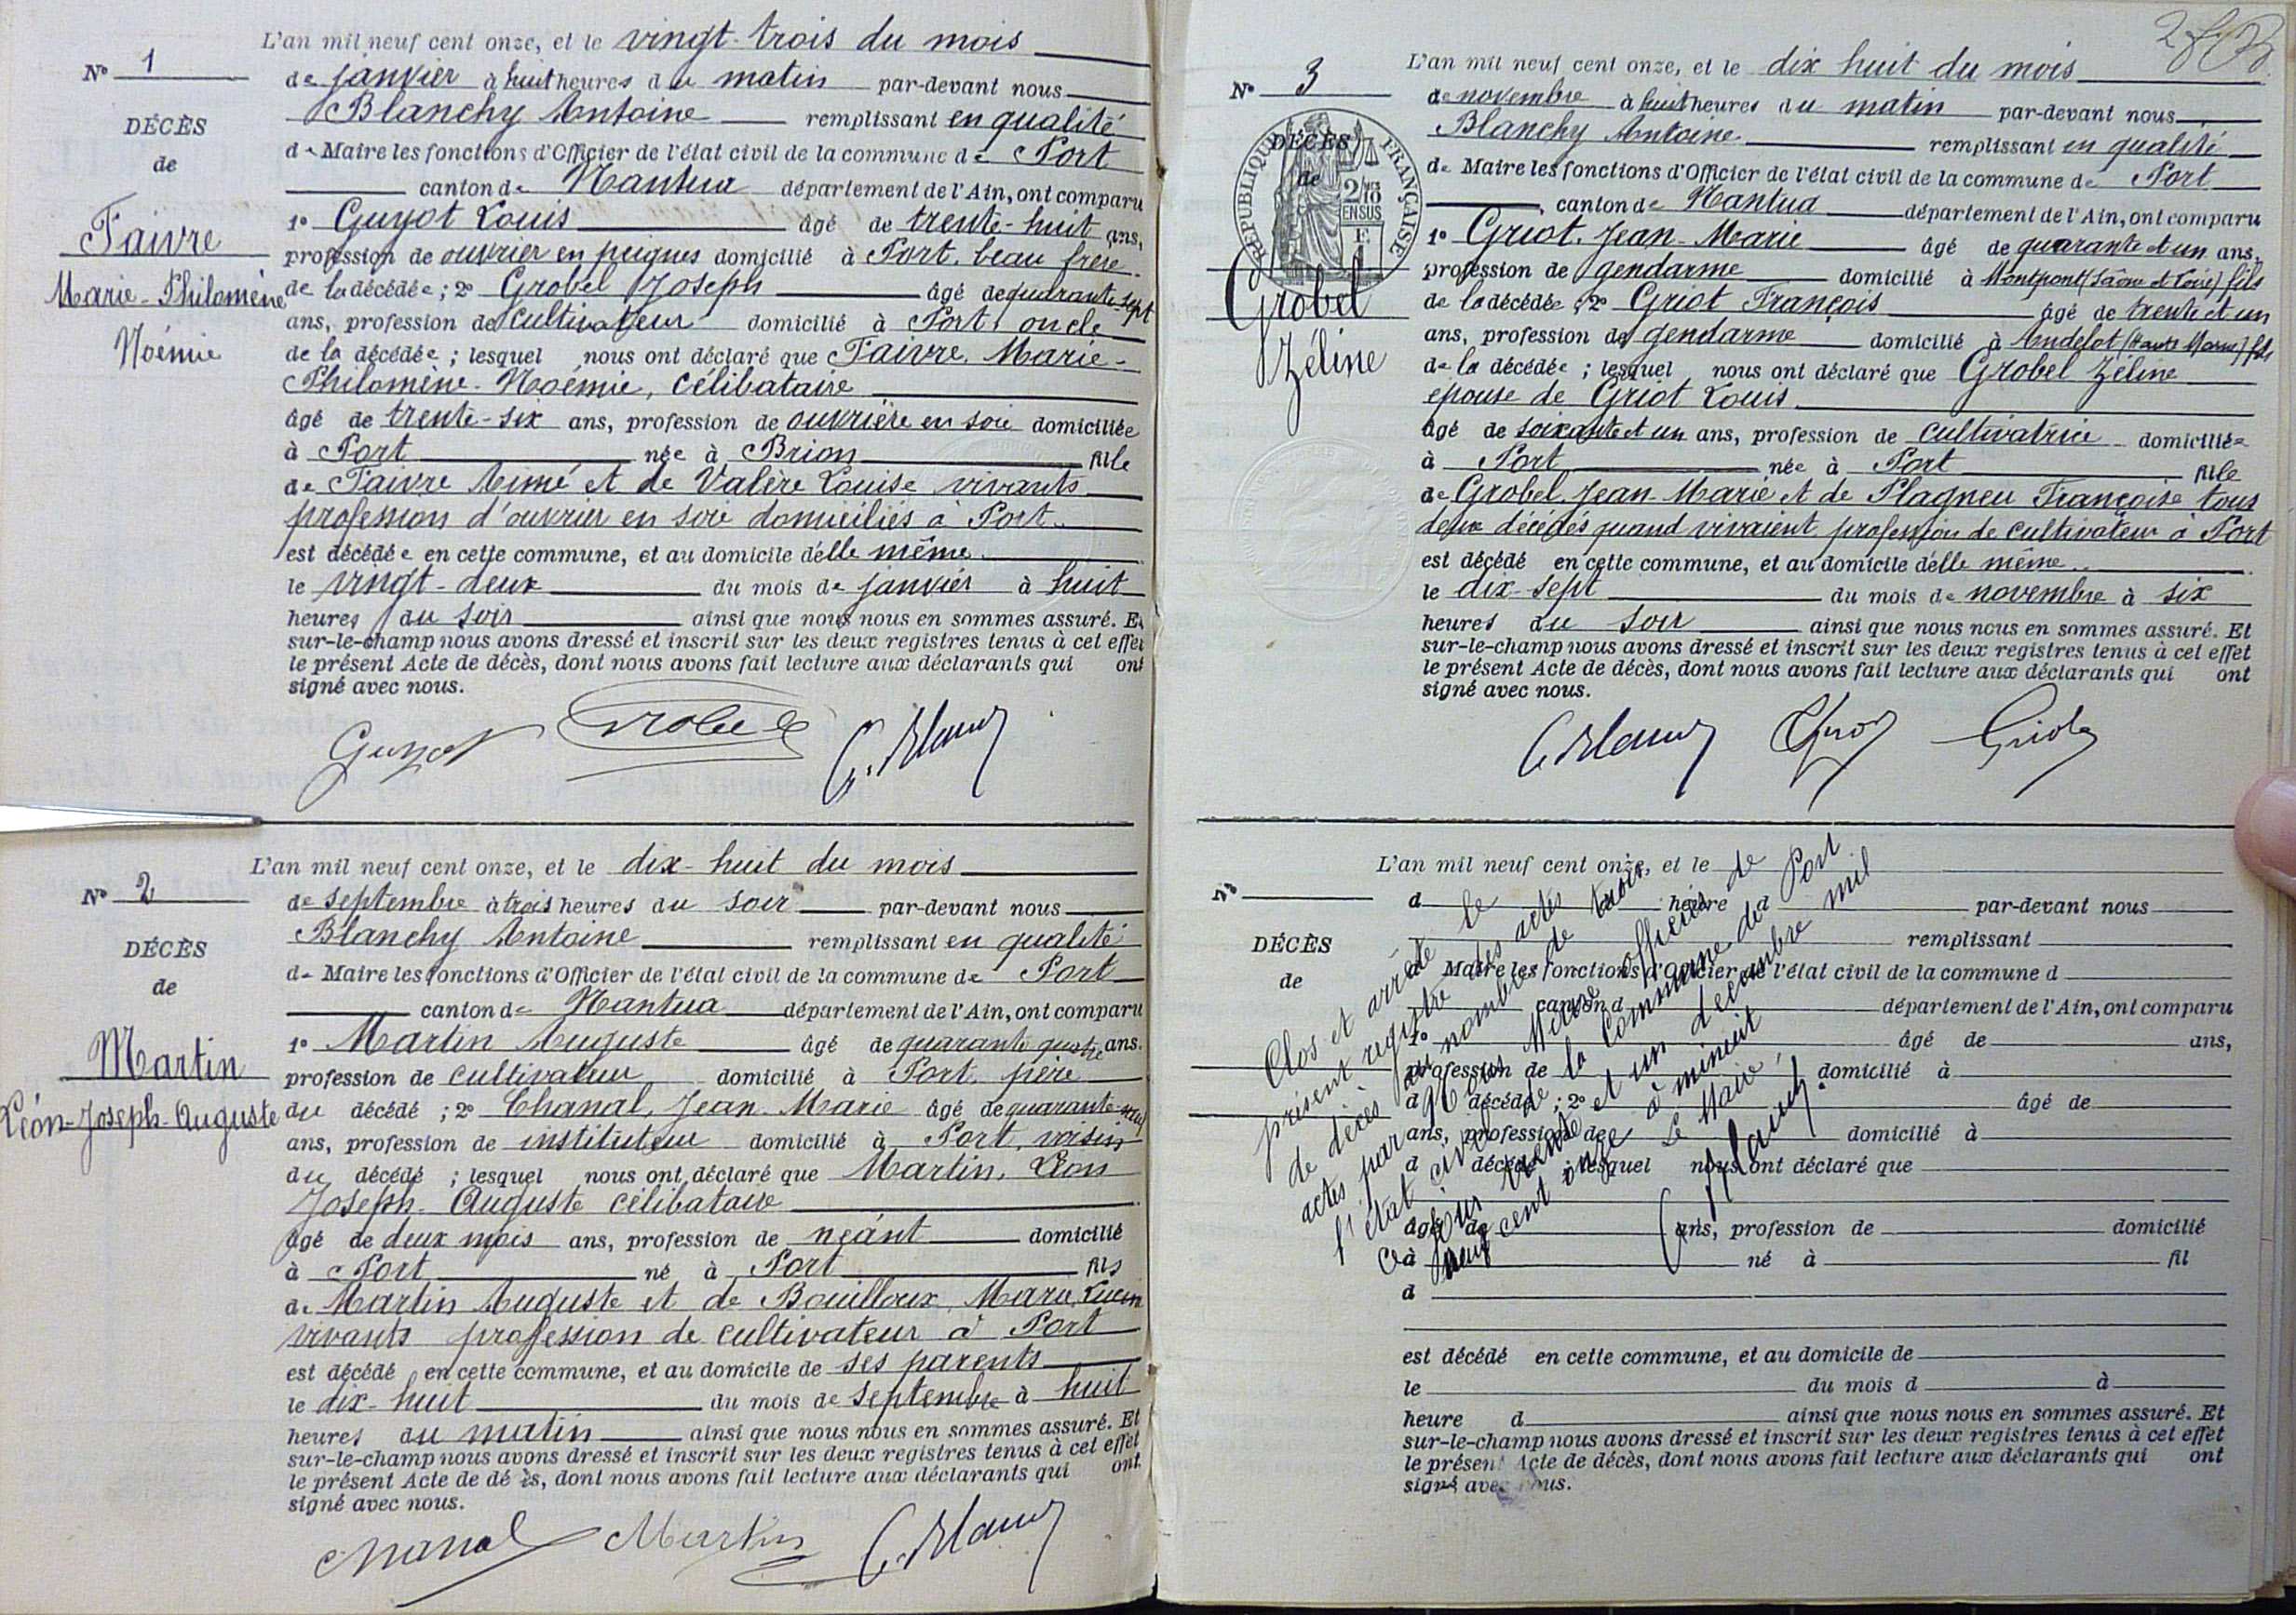 L'an mil neuf cent onze, et le vingt-trois du mois
N° 1
de janvier à huit heures du matin par-devant nous
Blanchy Antoine remplissant en qualité
DÉCÈS
de Maire les fonctions d'Officier de l'état civil de la commune de Port
de
canton de Nantua département de l'Ain, ont comparu
Faivre
Marie-Philomène
Noémie
1° Guyot Louis âgé de trente-huit ans,
profession de ouvrier en peignes domicilié à Port, beau frère
de la décédée ; 2° Grobel Joseph âgé de quarante-sept
ans, profession de cultivateur domicilié à Port, oncle
de la décédée ; lesquel nous ont déclaré que Faivre, Marie-
Philomène-Noémie, célibataire
âgé de trente-six ans, profession de ouvrière en soie domiciliée
à Port née à Brion fille
de Faivre Aimé et de Valère Louise vivants
profession d'ouvrier en soie domiciliés à Port.
est décédée en cette commune, et au domicile d'elle même.
le vingt-deux du mois de janvier à huit
heures du soir ainsi que nous nous en sommes assuré. Et
sur-le-champ nous avons dressé et inscrit sur les deux registres tenus à cet effet
le présent Acte de décès, dont nous avons fait lecture aux déclarants qui ont
signé avec nous.
Guyot Grobel A. Blanchy
L'an mil neuf cent onze, et le dix-huit du mois
N° 2
de septembre à trois heures du soir par-devant nous
Blanchy Antoine remplissant en qualité
DÉCÈS
de Maire les fonctions d'Officier de l'état civil de la commune de Port
de
canton de Nantua département de l'Ain, ont comparu
Martin
Léon-Joseph-Auguste
1° Martin Auguste âgé de quarante quatre ans.
profession de cultivateur domicilié à Port, père
du décédé ; 2° Chanal, Jean-Marie âgé de quarante-neuf
ans, profession de instituteur domicilié à Port, voisin
du décédé ; lesquel nous ont déclaré que Martin, Léon
Joseph-Auguste célibataire
âgé de deux mois ans, profession de néant domicilié
à Port né à Port fils
de Martin Auguste et de Bouilloux, Marie,
vivants profession de cultivateur à Port
est décédé en cette commune, et au domicile de ses parents
le dix-huit du mois de septembre à huit
heures du matin ainsi que nous nous en sommes assuré. Et
sur-le-champ nous avons dressé et inscrit sur les deux registres tenus à cet effet
le présent Acte de dé ès, dont nous avons fait lecture aux déclarants qui ont
signé avec nous.
Chanal Martin A. Blanchy
L'an mil neuf cent onze, et le dix huit du mois
N° 3
de novembre à huit heures du matin par-devant nous
Blanchy Antoine remplissant en qualité
DÉCÈS
de
RÉPUBLIQUE FRANÇAISE
2/10
EN SUS
E
de Maire les fonctions d'Officier de l'état civil de la commune de Port
canton de Nantua département de l'Ain, ont comparu
Grobel
Zéline
1° Griot, Jean-Marie âgé de quarante et un ans,
profession de gendarme domicilié à Montpont (Saône et Loire) fils
de la décédée ; 2° Griot François âgé de trente et un
ans, profession de gendarme domicilié à Andelot (Haute Marne) fils
de la décédée ; lesquel nous ont déclaré que Grobel Zéline
épouse de Griot Louis
âgé de soixante et un ans, profession de cultivatrice domiciliée
à Port née à Port fille
de Grobel, Jean-Marie et de Plagneu Françoise tous
deux décédés quand vivaient, profession de cultivateur à Port
est décédé en cette commune, et au domicile d'elle même.
le dix-sept du mois de novembre à six
heures du soir ainsi que nous nous en sommes assuré. Et
sur-le-champ nous avons dressé et inscrit sur les deux registres tenus à cet effet
le présent Acte de décès, dont nous avons fait lecture aux déclarants qui ont
signé avec nous.
A. Blanchy Griot Griot
L'an mil neuf cent onze, et le
N°
d heure d par-devant nous
remplissant
DÉCÈS
d Maire les fonctions d'Officier de l'état civil de la commune d
de
canton d département de l'Ain, ont comparu
1° âgé de ans,
profession de domicilié à
d décédé ; 2° âgé de
ans, profession de domicilié à
d décédé ; lesquel nous ont déclaré que
âgé de ans, profession de domicilié
à né à fil
d
est décédé en cette commune, et au domicile de
le du mois d à
heure d ainsi que nous nous en sommes assuré. Et
sur-le-champ nous avons dressé et inscrit sur les deux registres tenus à cet effet
le présent Acte de décès, dont nous avons fait lecture aux déclarants qui ont
signé avec nous.
Clos et arrêté le
présent registre des actes
de décès au nombre de trois
actes par Nous Maire officier de
l'état civil de la commune de Port
Ce jour trente et un décembre mil
neuf cent onze à minuit
Le Maire,
A. Blanchy